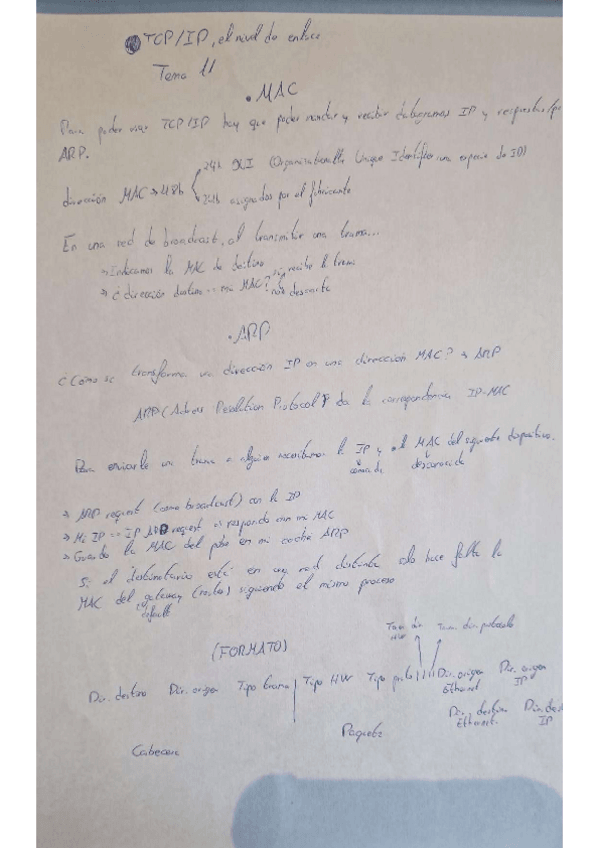 TCP/IP, el nivel de enlace
Tema 11
• MAC
Para poder usar TCP/IP hay que poder mandar y recibir datagramas IP y respuestas/pe
ARP.
24b OUI (Organizationally Unique Identifier una especie de ID)
dirección MAC → 48b
24b asignados por el fabricante
En una red de broadcast, al transmitir una trama...
→ Indicamos la MAC de destino
→ ¿dirección destino == mi MAC? sí, recibe la trama
no, descarta
• ARP
¿Cómo se transforma una dirección IP en una dirección MAC? → ARP
ARP (Adress Resolution Protocol) da la correspondencia IP-MAC
Para enviarle una trama a alguien necesitamos la IP y el MAC del siguiente dispositivo.
conocida desconocida
→ ARP request (como broadcast) con la IP
→ Mi IP == IP ARP request → respondo con mi MAC
→ Guardo la MAC del en mi caché ARP
Si el destinatario está en una red distinta solo hace falta la
MAC del gateway (router) siguiendo el mismo proceso
default
(FORMATO)
Tam. dir. HW Tam. dir. protocolo
Dir. destino Dir. origen Tipo trama Tipo HW Tipo proto Dir. origen Ethernet Dir. origen IP
Dir. destino Ethernet Dir. dest IP
Cabecera Paquete